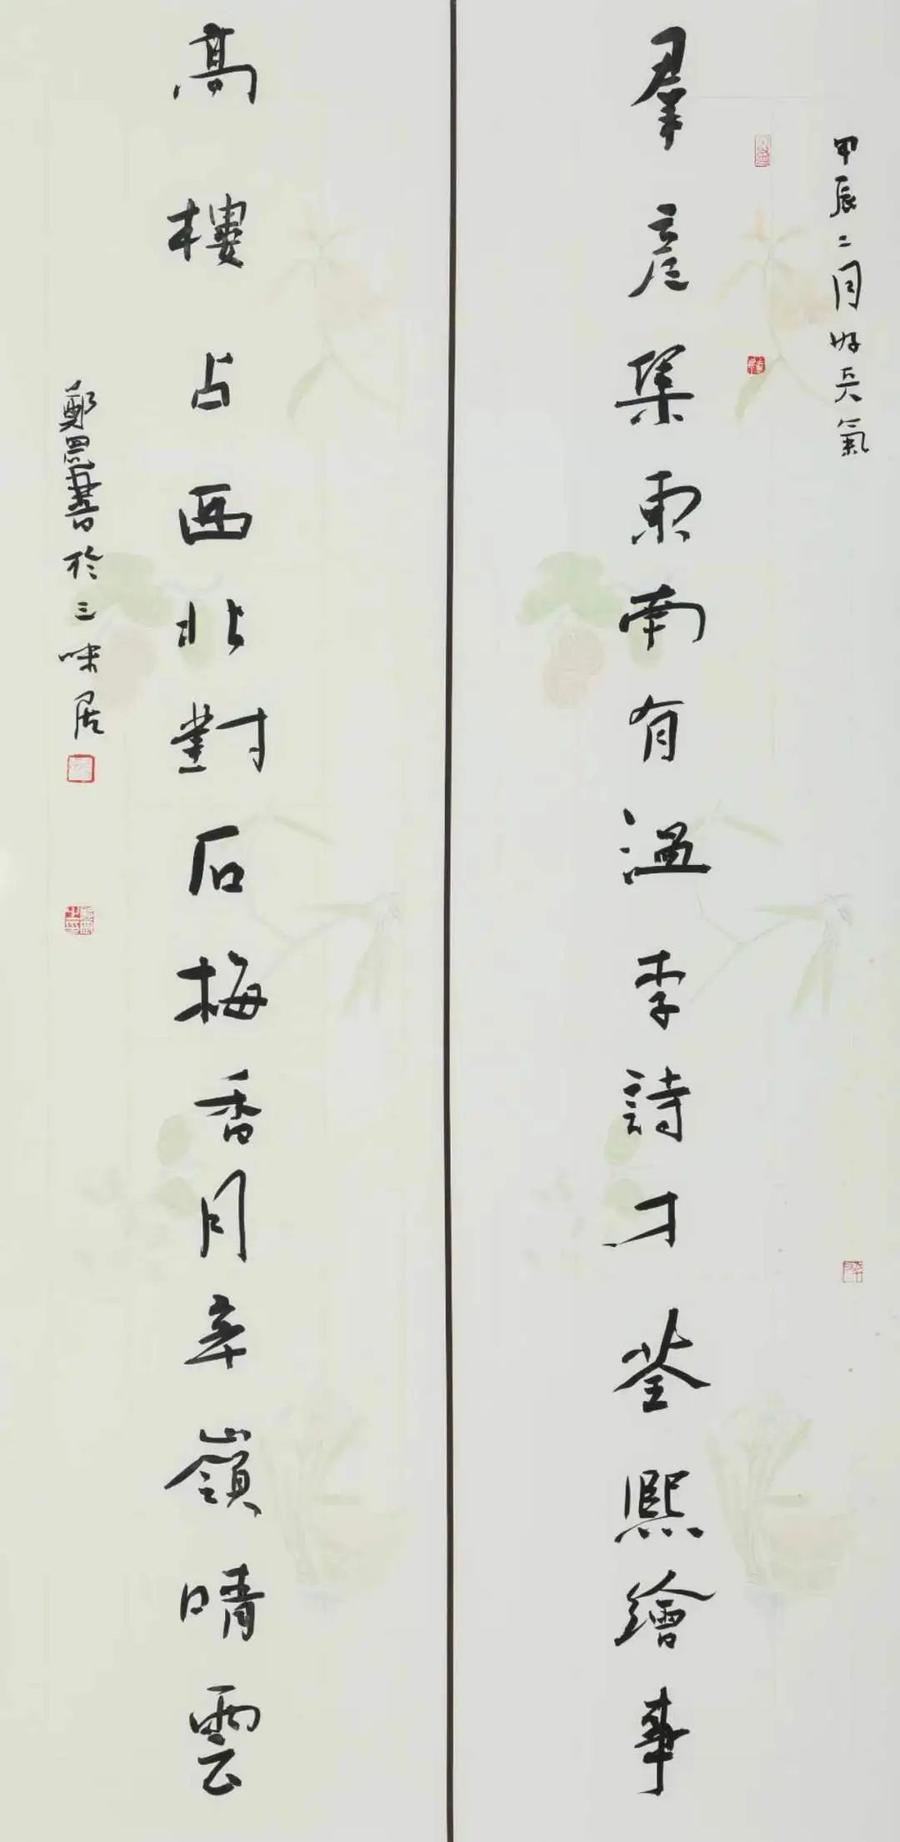 甲辰二月好天氣
羣彥集東南有溫李詩才荃熙繪事
高樓占西北對石梅香月辛嶺晴雲
鄭𦋺書於三味居